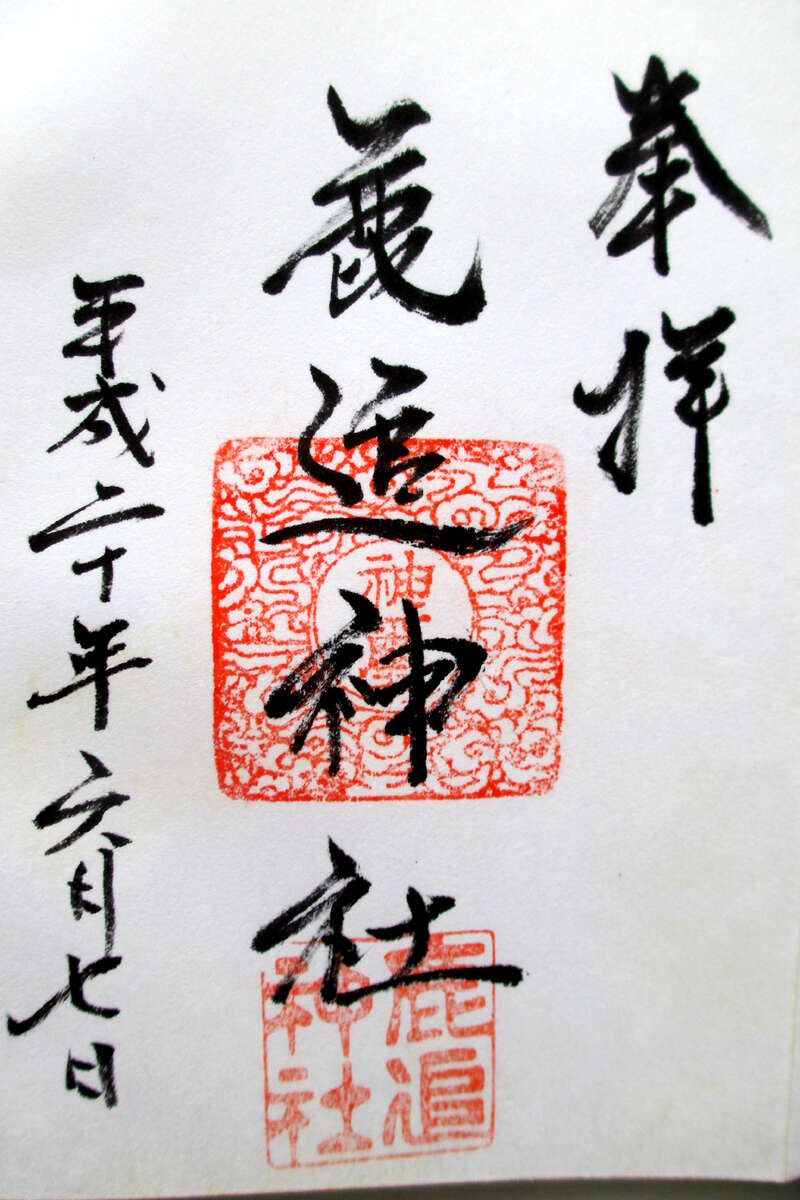 奉拝
鹿追神社
鹿追
神社
平成二十年六月七日